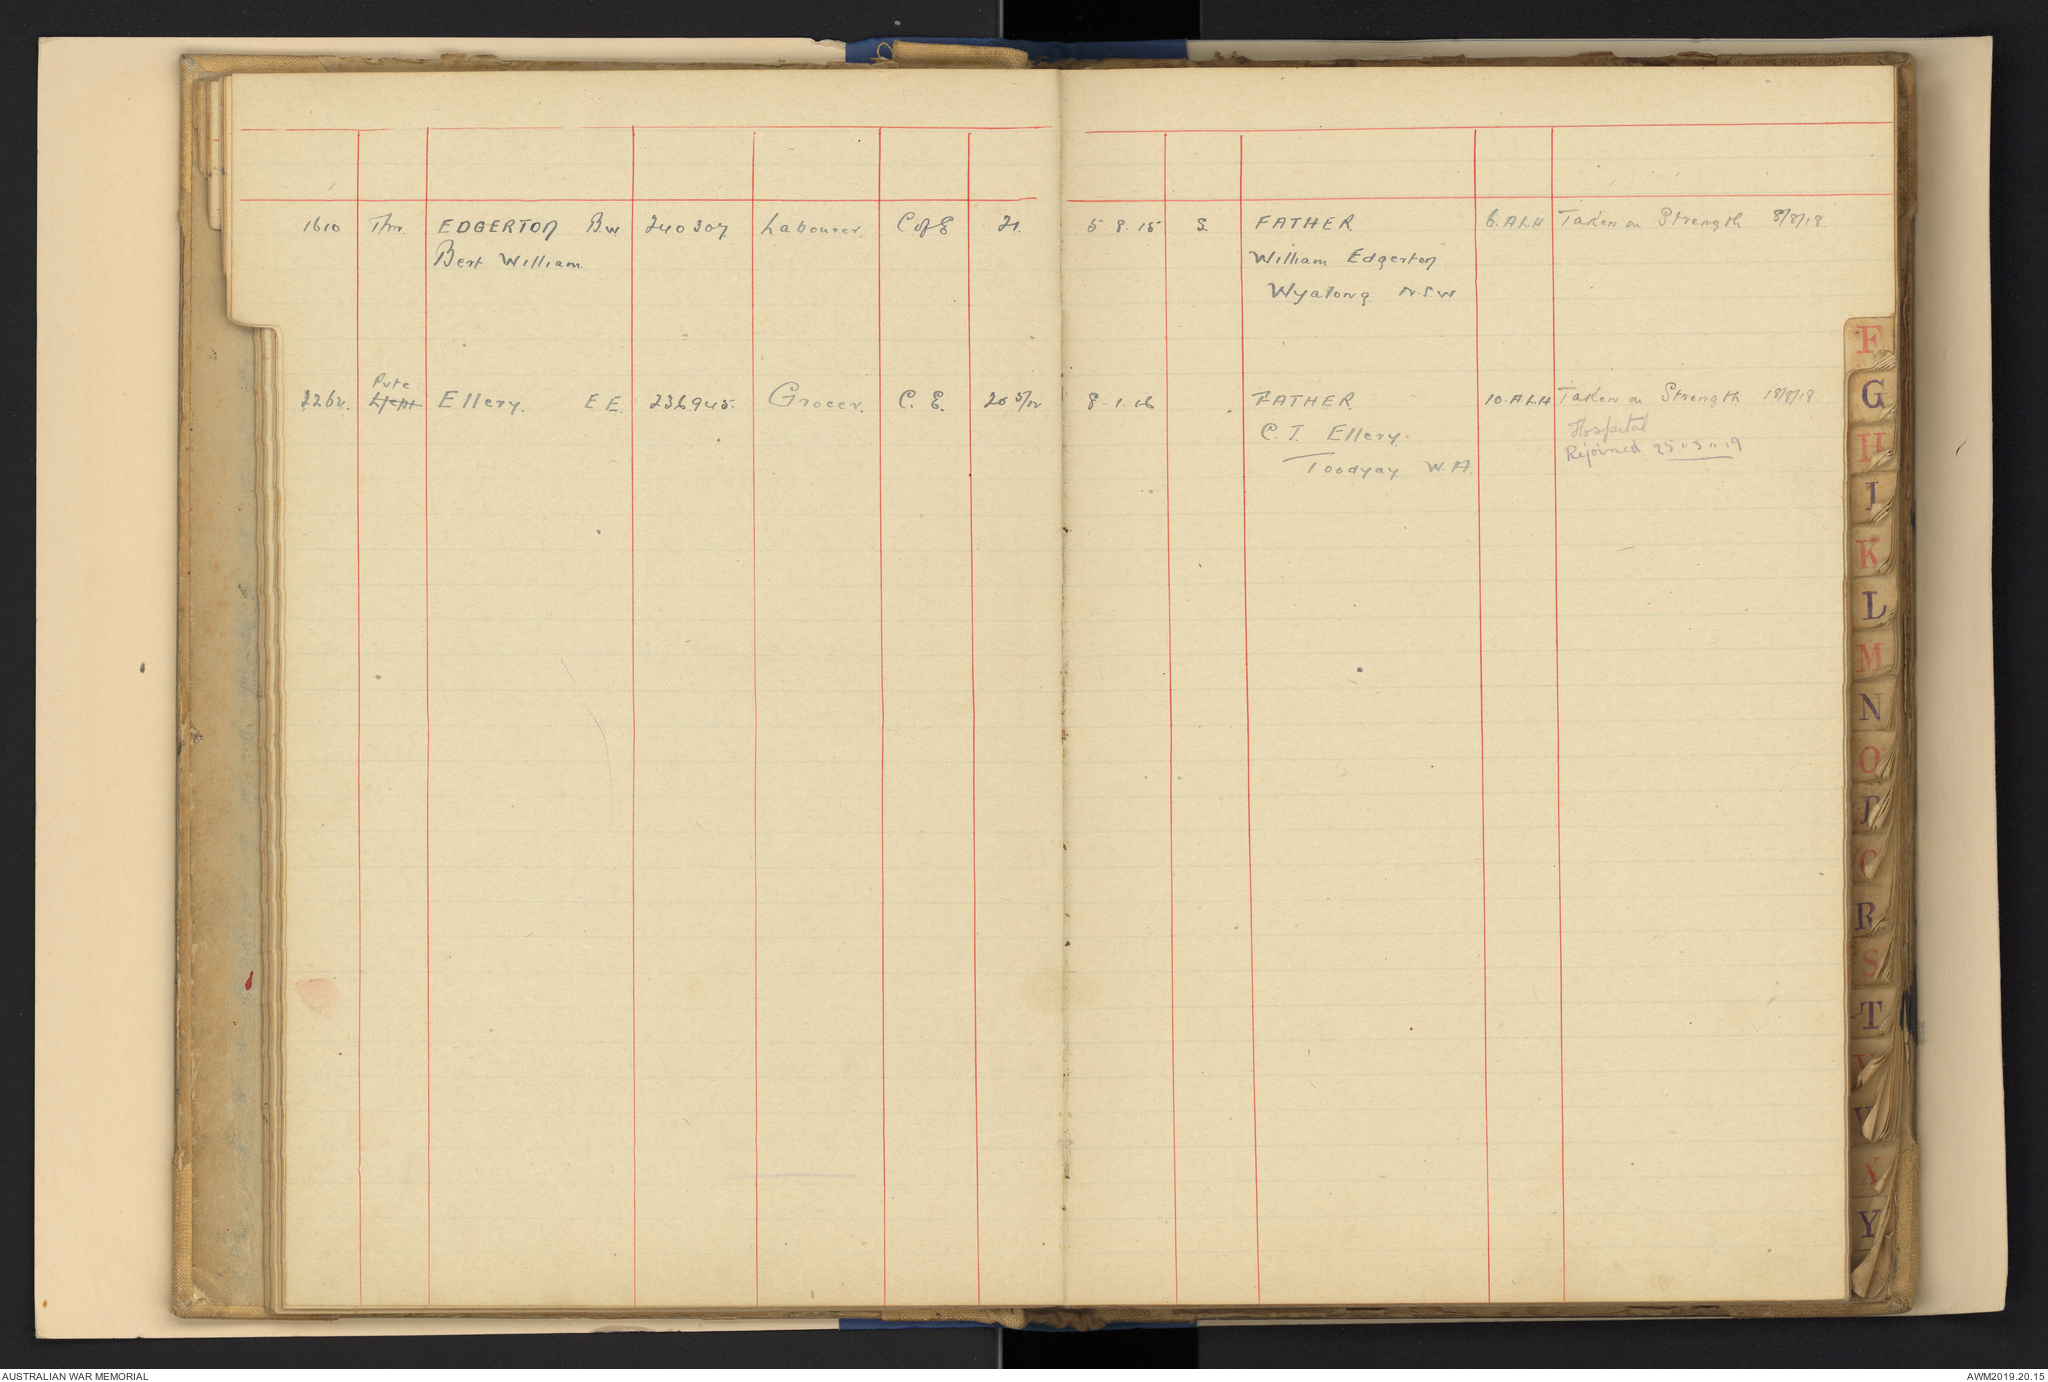 1610 Tpr. EDGERTON BW 240307 Labourer. C of E 21. 5.8.15 S. FATHER. 6.A.L.H Taken on Strength 8/8/18.
Bert William. William Edgerton
Wyalong N.S.W
Pvte
2262. L/Cpl Ellery. E E. 236945. Grocer. C. E. 20 5/12 8.1.16 FATHER. 10.A.L.H Taken on Strength 18/8/18.
C. J. Ellery. Hospital
Toodyay W.A. Rejoined 25"3"19
F
G
H
I
K
L
M
N
O
P
Q
R
S
T
V
W
X
Y
AUSTRALIAN WAR MEMORIAL AWM2019.20.15